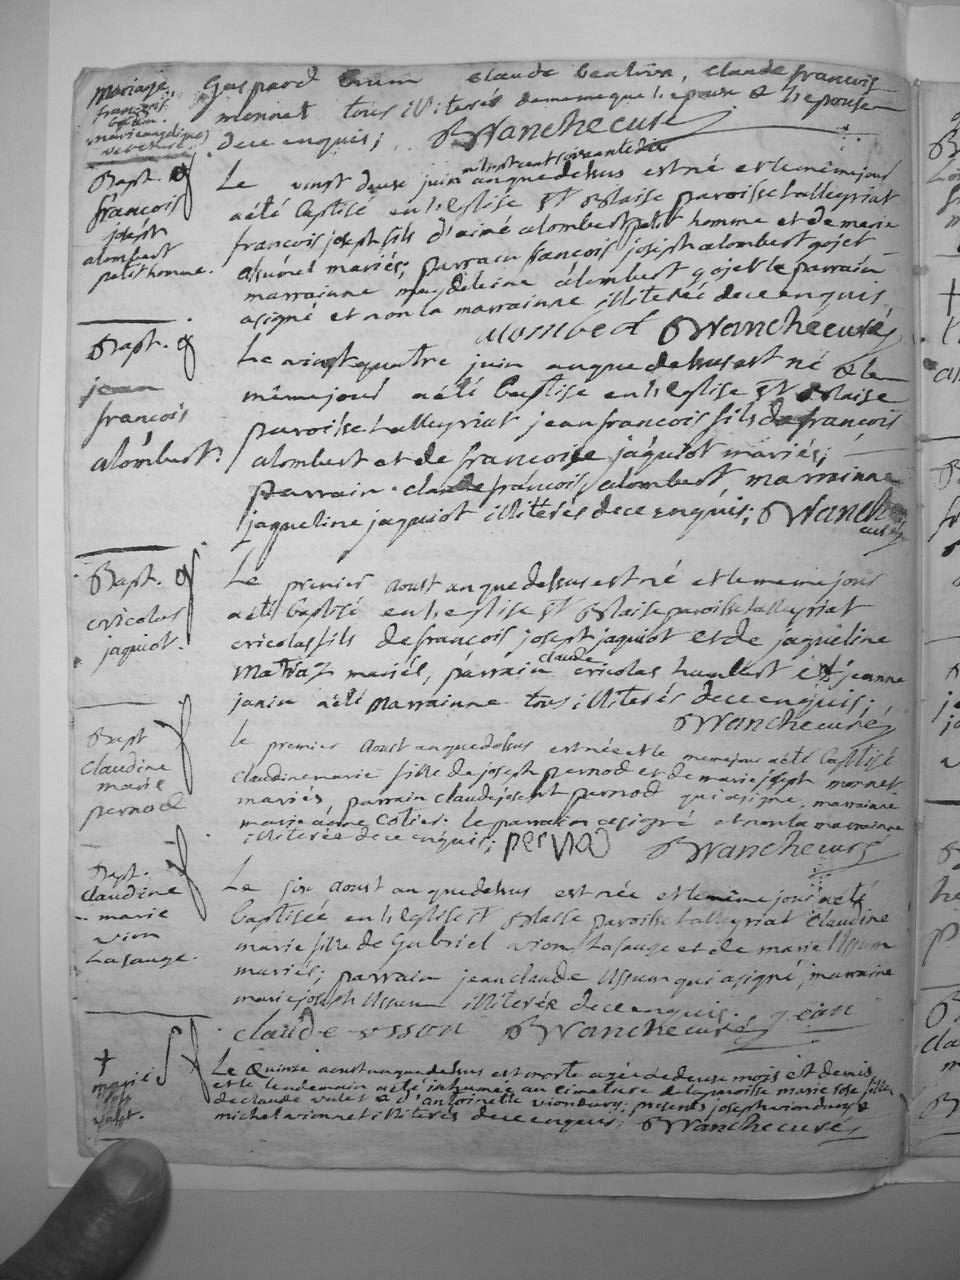 mariage
françois
marieangelique
Gaspard claude claude francois
monnet tous illiterés dememeque lepouse & lepouse
dece enquis; Blanche curé
Bapt.
françois
joseph
alombert
petit homme.
Le vingt deuse juin milseptcentsoixantedix anquedessus est né et lemêmejour
aété baptisé enl'eglise St Blaise paroisse talleyriat
francois joseph fils d'aimé alombert petit homme et de marie
mariés; parrain francois joseph alombert gojet
marrainne magdeleine alombert gojet le parrain
asigné et non la marrainne illiterée dece enquis
alombert Blanche curé
Bapt.
jean
françois
alombert
Le vingtquatre juin anquedessus est né & le
mêmejour aété baptisé enl'eglise St Blaise
paroisse talleyriat jean francois fils de françois
alombert et de francoise jaquiot mariés;
parrain claude francois alombert marrainne
jaqueline jaquiot illiterés dece enquis; Blanche
curé
Bapt.
nicolas
jaquiot.
Le premier aoust anquedessus est né et lemêmejour
aété baptisé enl'eglise St Blaise paroisse talleyriat
nicolas fils de françois josept jaquiot et de jaqueline
mariés, parrain claude nicolas humbert et jeanne
janin aété marrainne tous illiterés dece enquis;
Blanche curé
Bapt
claudine
marie
pernod
le premier aoust anquedessus est née et le memejour aété baptisé
claudinemarie fille de joseph pernod et de marie joseph monnet
mariés, parrain claudejosept pernod qui asigné, marrainne
marie le parrain asigné et non la marrainne
illiterée dece enquis; pernod Blanche curé
Bapt.
claudine
marie
vion
Lasauge.
Le six aoust anquedessus est née et lemême jour aeté
baptisée enl'eglise St Blaise paroisse talleyriat claudine
marie fille de Gabriel vion Lasauge et de marie Ussum
mariés; parrain jean claude Ussum qui asigné, marrainne
marie joseph Ussum illiterée dece enquis. jean
claude usson Blanche curé
marie
Le Quinze aoust anquedessus est morte agée dedeuse mois et demis
et le lendemain aété inhumée au cimetiere delaparoisse marie rose fille
declaude valet & d'antoinette viondury; presents joseph viondury &
michel vionnet illiterés dece enquis; Blanche curé